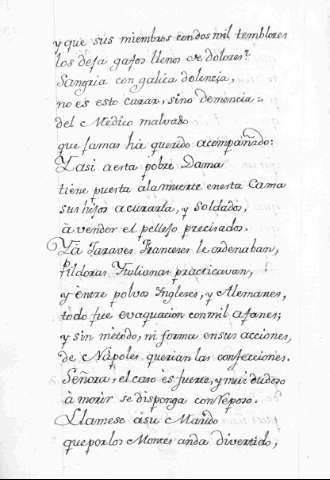 y que sus miembros con dos mil temblores
los deja gafos llenos de dolores:
Sangria con galica dolencia,
no es esto curar, sino demencia:
del Medico malvado
que jamas há querido acompañado:
Y asi a esta pobre Dama
tiene puesta ala muerte en esta Cama
sus hijos a curarla, y soldados,
à vender el pellejo precisados.
Yà Jaraves Franceses le ordenaban,
Pildoras Italianas practicavan,
y entre polvos Ingleses, y Alemanes,
todo fue evaquacion con mil afanes;
y sin metodo, ni forma en sus acciones,
de Nàpoles querian las confecciones.
Señora, el caso es fuerte, y mui dudoso
à morir se disponga con reposo.
Llamese à su Marido
que por los Montes anda divertido,